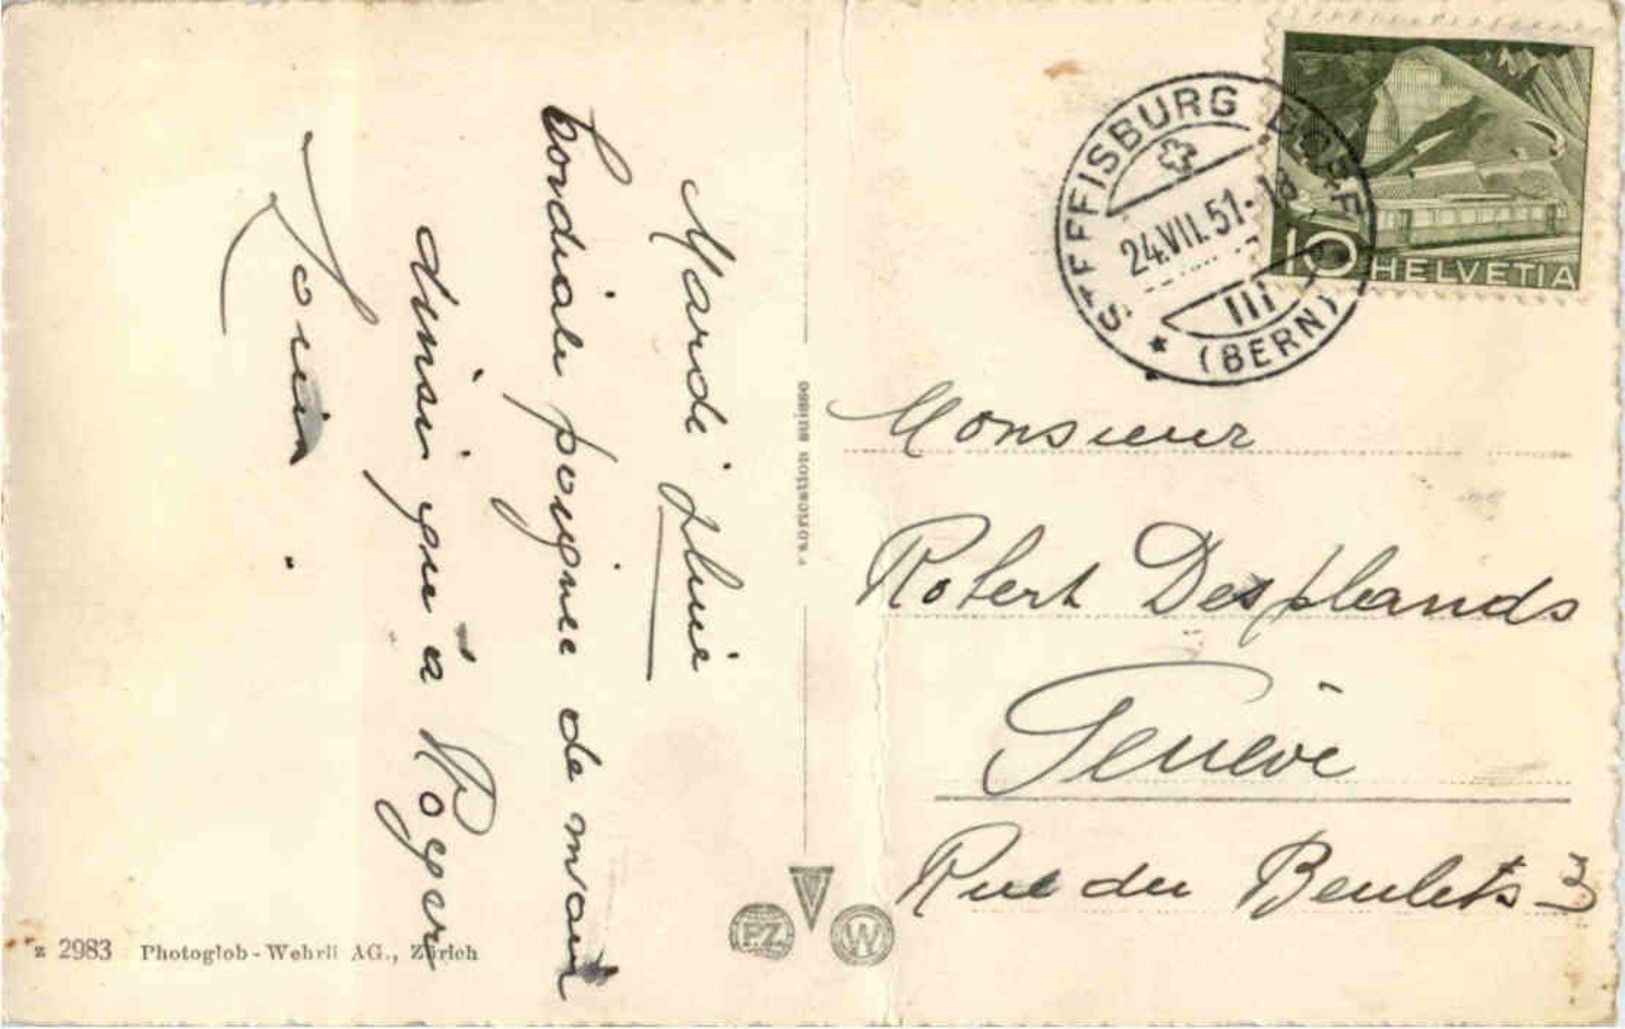 Mardi pluie
Cordiale poignée de main
ainsi qu'à Roger
Fabrication suisse
STEFFISBURG DORF
24.VII.51.-18
III
(BERN)
10 HELVETIA
Monsieur
Robert Desplands
Genève
Rue du Beulets 3
P.Z.
W
z 2983 Photoglob-Wehrli AG., Zürich